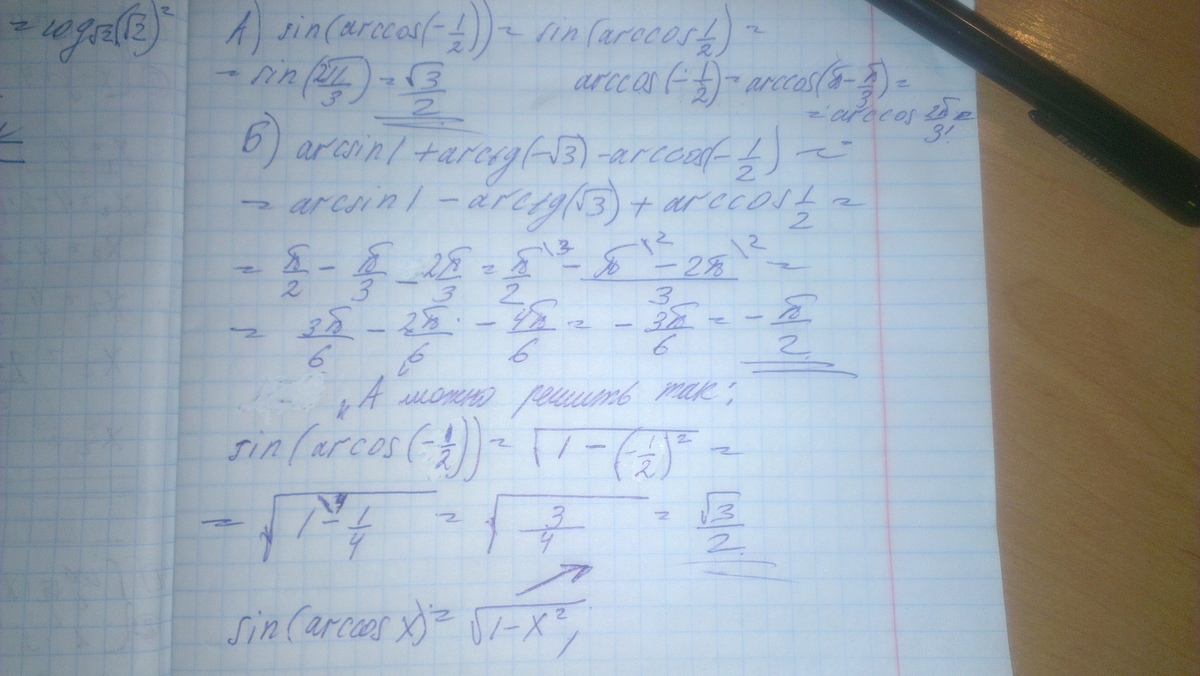 = log√2(√2)²
А) sin(arccos(-1/2)) = sin(arccos 1/2) =
= sin(2π/3) = √3/2
arccos(-1/2) = arccos(π - π/3) =
= arccos 2π/3.
Б) arcsin1 + arctg(-√3) - arccos(-1/2) =
= arcsin1 - arctg(√3) + arccos 1/2 =
= π/2 - π/3 - 2π/3 = π\3/2 - π\2 - 2π\2/3 =
= 3π/6 - 2π/6 - 4π/6 = - 3π/6 = - π/2
"А можно решить так:
sin(arcos(-1/2)) = √(1 - (-1/2)²) =
= √(1\4 - 1/4) = √(3/4) = √3/2
sin(arccos x) = √(1-x²),